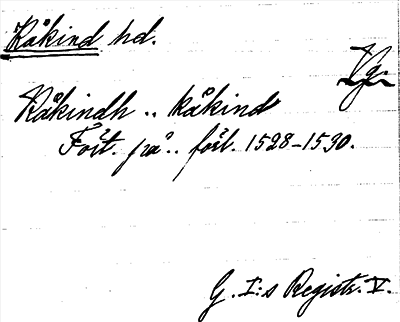 Kåkind hd.
Vg.
Kåkindh .. kåkind
Fört. på .. förl. 1528-1530.
G. I:s Registr. V.